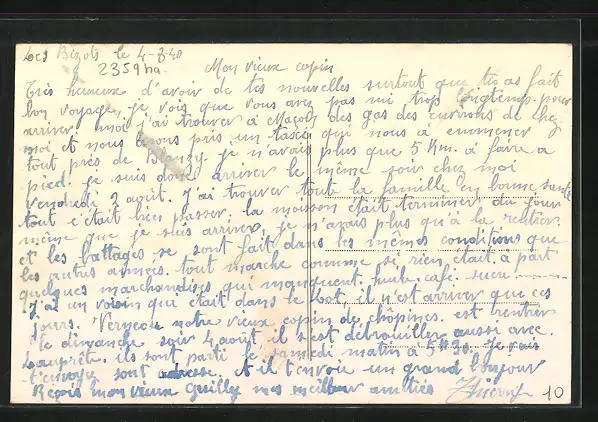 Les Bizots le 4-8-40
2359 ha
Mon vieux copin
Très heureux d'avoir de tes nouvelles surtout que tu as fait
bon voyage, je vois que vous avez pas mi trop longtemp pour
arriver moi j'ai trouver à Macôn des gas des environs de chez
moi et nous avons pris un taxi qui nous à emmener
tout près de Blanzy je n'avais plus que 5 Km. à faire a
pied. je suis donc arriver le même soir chez moi
Vendredi 2 août. J'ai trouver toute la famille en bonne santé
tout c'était bien passer. la moisson était terminer du jour
même que je suis arriver, je n'avais plus qu'à la rentrer.
et les battages se sont fait dans les mêmes conditions que
les autres années. tout marche comme si rien était. à part
quelques marchandises qui manquent. huile café sucre
J'ai un voisin qui était dans le Lot, il n'est arriver que ces
jours. notre vieux copin de chôpines. est rentrer
le dimanche soir 4 août, il s'est débrouiller aussi avec.
ils sont parti le samedi matin à 5H30. Je vais
t'envoyer sont adresse. Et il t'envoie un grand bonjour
Reçois mon vieux Guilly mes meilleur amitiés
10